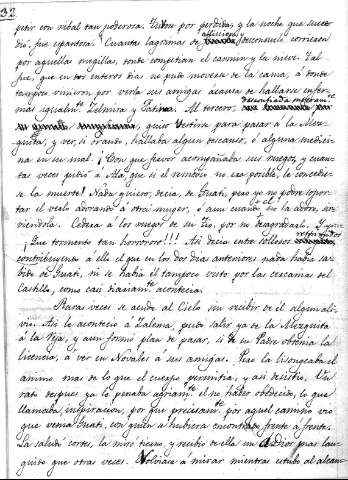 32
petir con ribal tan poderosa. Tubo por perdidas, y la noche que suce
dió, fue espantosa. Cuantas lagrimas de
afliccion y desconsuelo corrieron
por aquellas megillas, donde competian el carmin y la nieve. Tal
fue, que en dos enteros dias no pudo moverse de la cama, á donde
tampoco vinieron por verla sus amigas á causa de hallarse enfer
mas igualmte. Zelmira y Fatma. Al tercero,
quiso vestirse para pasar á la Mez
quita, y ver, si orando, hallaba algun descanso, ó alguna medici
na en su mal. ¡Con que fervor acompañaba sus ruegos, y cuan
tas veces pidió a Alá, que si el remedio no era posible, la concedie
se la muerte! Nada quiero, decia, de Guati, pero yo no podré sopor
tar el verlo adorando á otra muger, ó aun cuando el no la adore, sir
viendola. Cederá á los ruegos de su Tio, por no desagradarlo. Y yo
¡Que tormento tan horroroso!!! Asi decia entre sollozos
contribuyendo á ello el que en los dos dias anteriores nada habia sa
bido de Guati, ni se habia él tampoco visto por las cercanias del
Castillo, como casi diariamte. acontecia.
Raras veces se acude al Cielo sin recibir de él algun ali
vio. Asi le acontecio á Zalema, pudo salir ya de la Mezquita
á la Vega, y aun formó plan de pasar, si de su Padre obtenia la
licencia, á ver en Novales á sus amigas. Pero la lisongeaba el
animo mas de lo que el cuerpo permitia, y asi desistio. Un
rato despues ya le pesaba agriamte. el no haber obedecido, lo que
llamaba inspiracion, por que precisamte. por aquel camino vio
que venia Guati, con quien se hubiera encontrado frente á frente.
La saludó cortes, la miró tierno, y recibio de ella un Adios mas lan
guido que otras veces. Volviose á mirar mientras estubo al alcan-